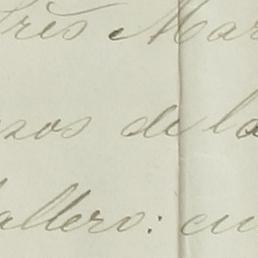 tres Mar
sos de la
allero: cu